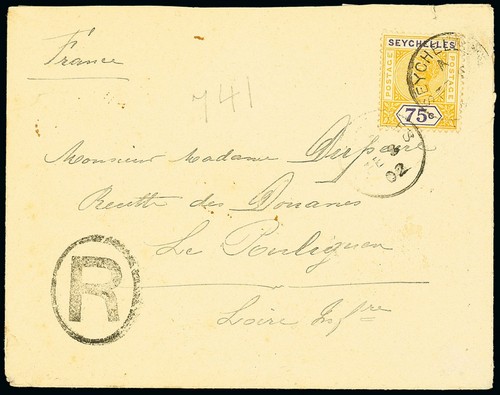 France
SEYCHELLES
POSTAGE
POSTAGE
75c.
SEYCHELLES
A
FE 8
02
741
Monsieur Madame
Recette des Douanes
Le Pouliguen
Loire Infre
R